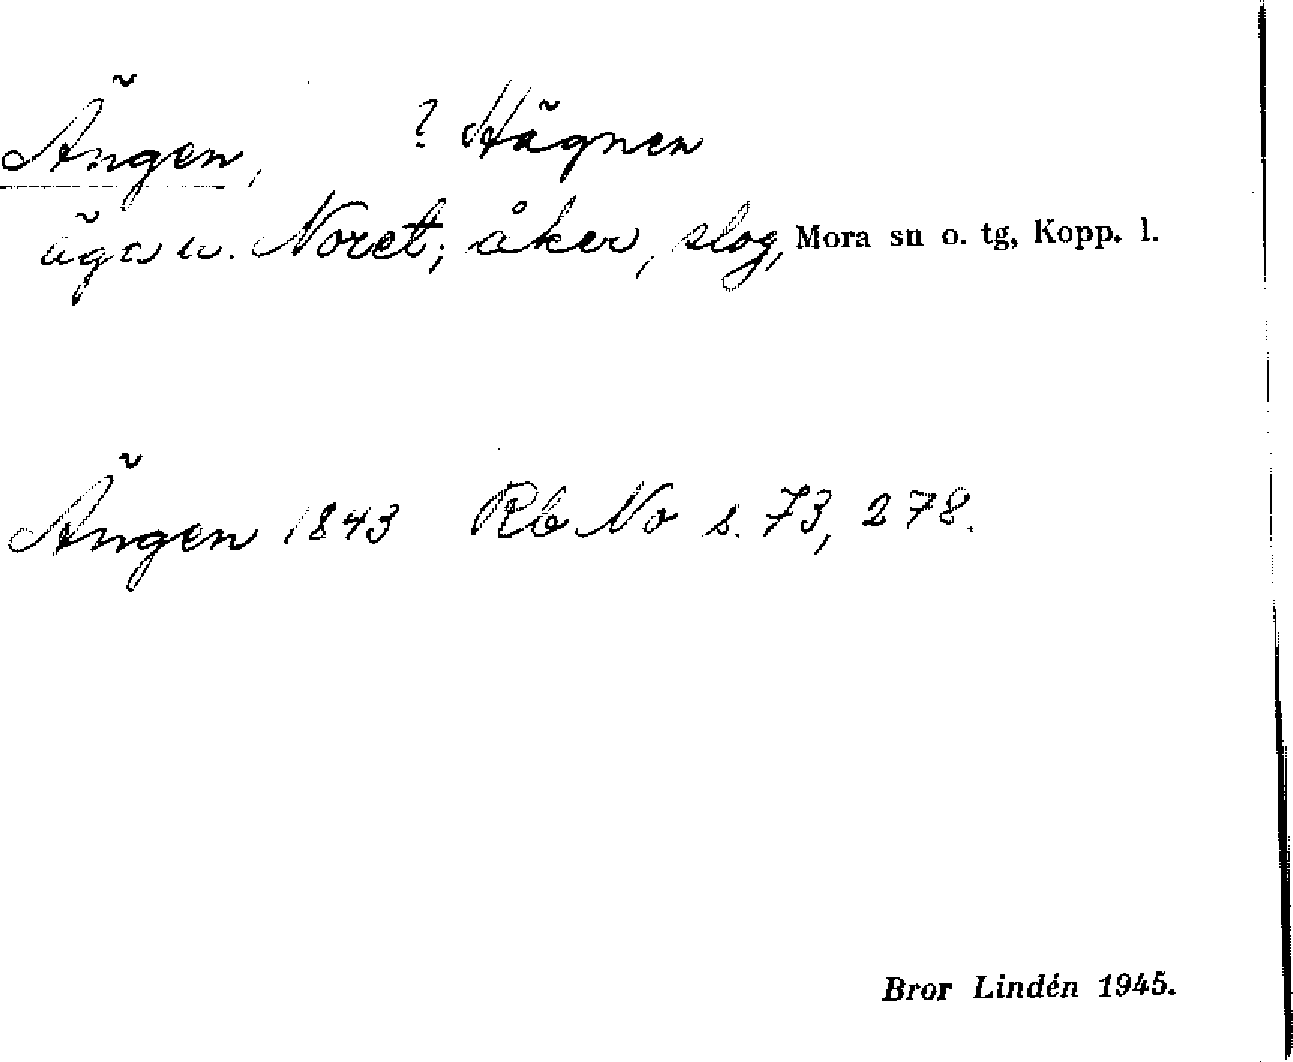 Ängen, ? Hägnen
äga u. Noret; åker, slog, Mora sn o. tg, Kopp. l.
Ängen 1843 Rb No s. 73, 278.
Bror Lindén 1945.